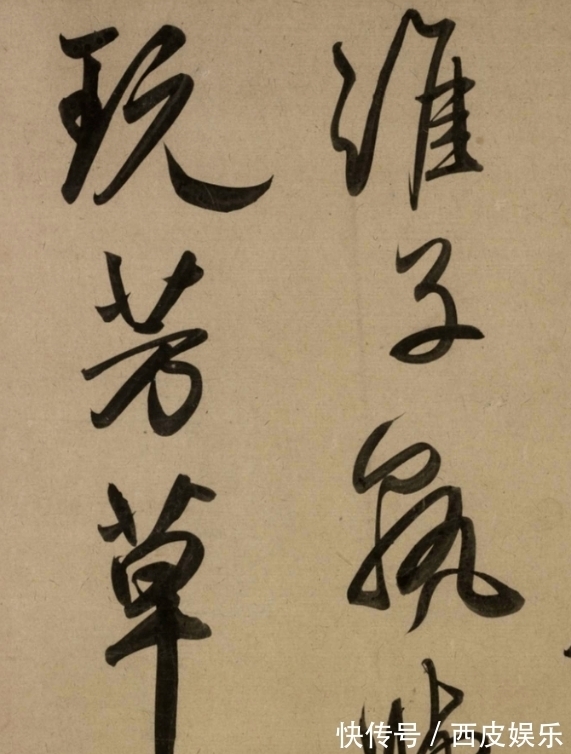 誰子
玩芳草
快传号/西皮娱乐